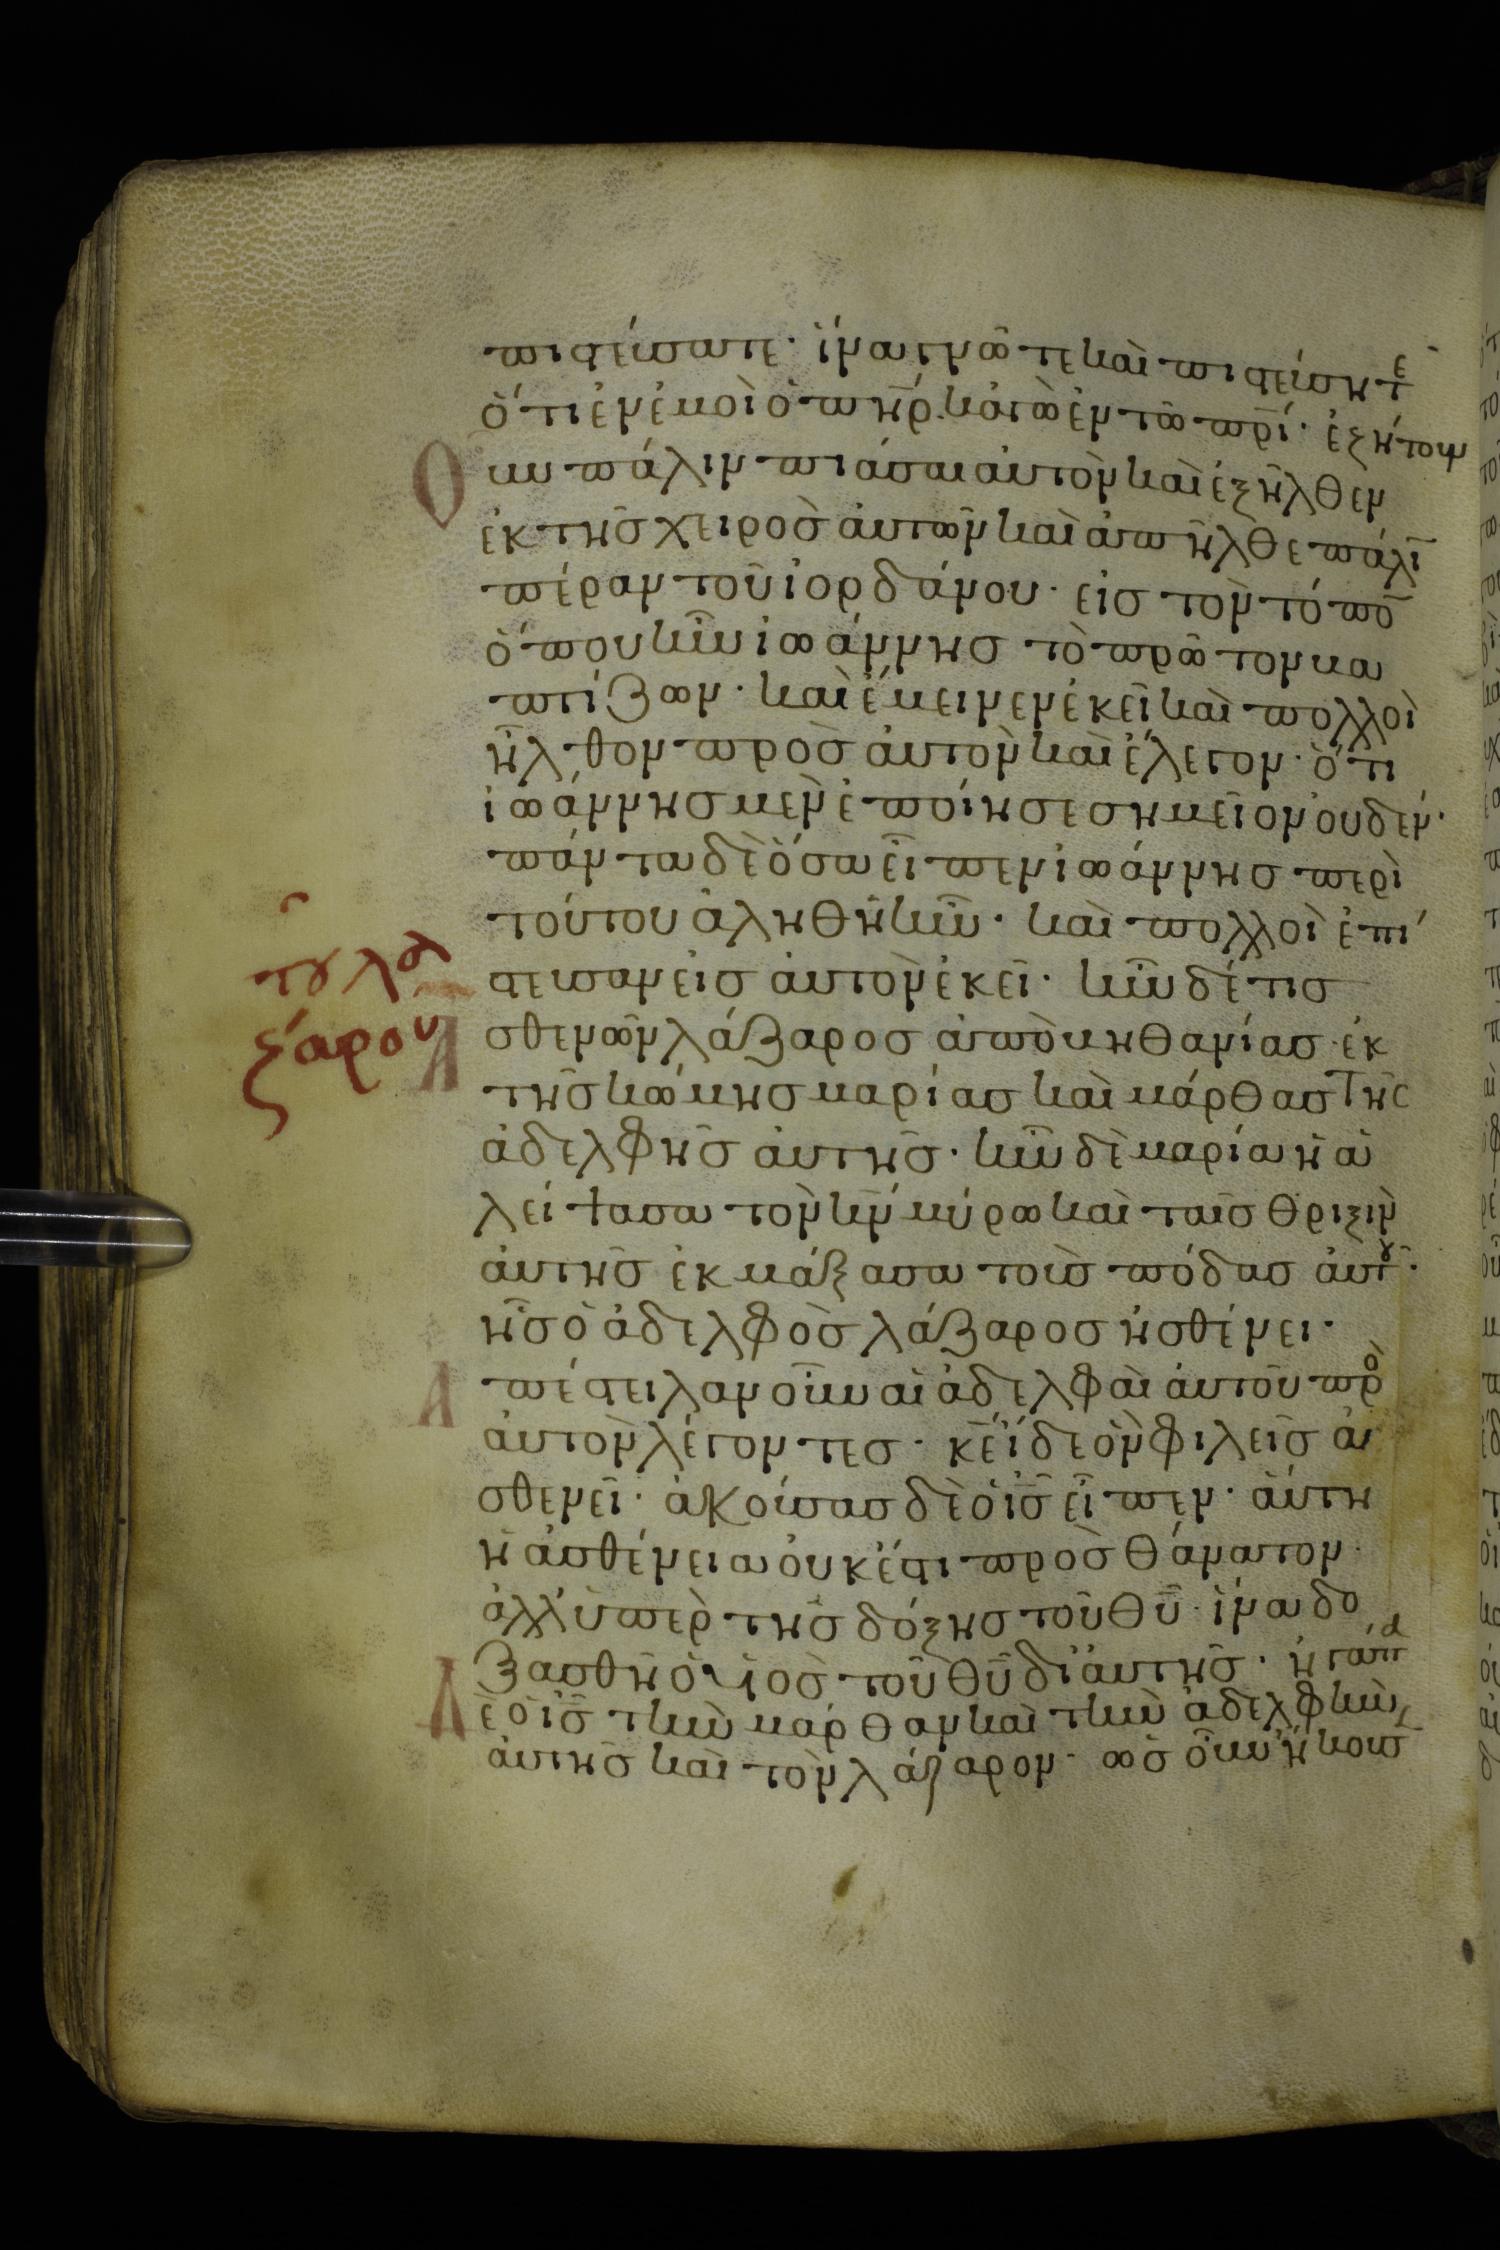 πιστεύσατε· ἵνα γνῶτε καὶ πιστεύσητε
ὅτι ἐν ἐμοὶ ὁ πῆρ· κἀγὼ ἐν τῶ πρί· ἐζήτουν
Ουν πάλιν πιάσαι αὐτὸν καὶ ἐξῆλθεν
ἐκ τῆς χειρὸς αὐτῶν καὶ ἀπῆλθε πάλῖ
πέραν τοῦ ἰορδάνου· εἰς τὸν τόπο̅
ὅπου ἦν ἰωάννης τὸ πρῶτον βα
πτίζων· καὶ ἔμεινεν ἐκεῖ καὶ πολλοὶ
ἦλθον πρὸς αὐτὸν καὶ ἔλεγον· ὅτι
ἰωάννης μὲν ἐποίησε σημεῖον οὐδέν·
πάντα δὲ ὅσα εἶπεν ἰωάννης περὶ
τούτου ἀληθῆ ἦν· καὶ πολλοὶ ἐπί
στευσαν εἰς αὐτὸν ἐκεῖ· ἦν δέ τις
τοῦ λα
ζάρου
Ασθενῶν λάζαρος ἀπὸ βηθανίας· ἐκ
τῆς κώμης μαρίας καὶ μάρθας τῆς
ἀδελφῆς αὐτῆς· ἦν δὲ μαρία ἡ ἀ
λείψασα τὸν κν̅ μύρω καὶ ταῖς θριξὶν
αὐτῆς ἐκμάξασα τοὺς πόδας αὐτοῦ·
ἧς ὁ ἀδελφὸς λάζαρος ἠσθένει·
Απέστειλαν οὖν αἱ ἀδελφαὶ αὐτοῦ πρὸ
αὐτὸν λέγοντες· κε̅ ἴδε ὃν φιλεῖς ἀ
σθενεῖ· ἀκούσας δὲ ὁ ις̅ εἶπεν· αὕτη
ἡ ἀσθένεια οὐκ ἔστι πρὸς θάνατον·
ἀλλ' ὑπὲρ τῆς δόξης τοῦ θυ̅· ἵνα δο
ξασθῆ ὁ υἱὸς τοῦ θυ̅ δι' αὐτῆς· ἠγάπα
Δὲ ὁ ις̅ τὴν μάρθαν καὶ τὴν ἀδελφὴν
αὐτῆς καὶ τὸν λάζαρον· ὡς οὖν ἤκουσ